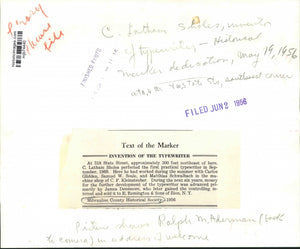 C. Latham Sholes, inventor
of typewriter — Historical
marker dedication, May 19, 1956
at N. 4th &
St., southwest corner
FINISHED PHOTO
FILED JUN 2 1956
Text of the Marker
INVENTION OF THE TYPEWRITER
At 318 State Street, approximately 300 feet northeast of here, C. Latham Sholes perfected the first practical typewriter in September, 1869. Here he had worked during the summer with Carlos Glidden, Samuel W. Soule, and Matthias Schwalbach in the machine shop of C. F. Kleinsteuber. During the next six years, money for the further development of the typewriter was advanced primarily by James Densmore, who later gained the controlling interest and sold it to E. Remington & Sons.
Milwaukee County Historical Society 1956
Picture shows Ralph M. Aderman (back
to camera) in address of welcome